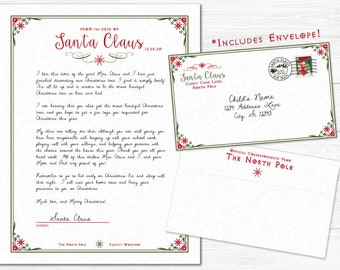 FROM THE DESK OF
Santa Claus
12.25.20
I love this time of the year! Mrs. Claus and I have just
finished decorating our Christmas tree. I find it simply lovely!
It's all lit up and it seems to be the most beautiful
Christmas tree we have ever had.
I am hearing that you also got the most beautiful Christmas
tree, and you hope to see your requests for
Christmas this year.
My elves are telling me that although you are still young, you
have been responsible with keeping up with your school work,
playing well with your siblings, and helping your parents with
chores around the house this year. Thank you for all your
hard work. All of this makes Mrs. Claus and I, and your
Mom and Dad very proud of you!
Remember to go to bed early on Christmas Eve and sleep well
that night. I will visit your home soon and bring your
presents to you on Christmas.
Much love, and Merry Christmas!
Santa Claus
SIGNED,
The North Pole
Santa's Workshop
*Includes Envelope!
Santa Claus
Candy Cane Lane,
North Pole
Child's Name
1234 Address Lane
City, St 12345
Official Correspondence From
The North Pole